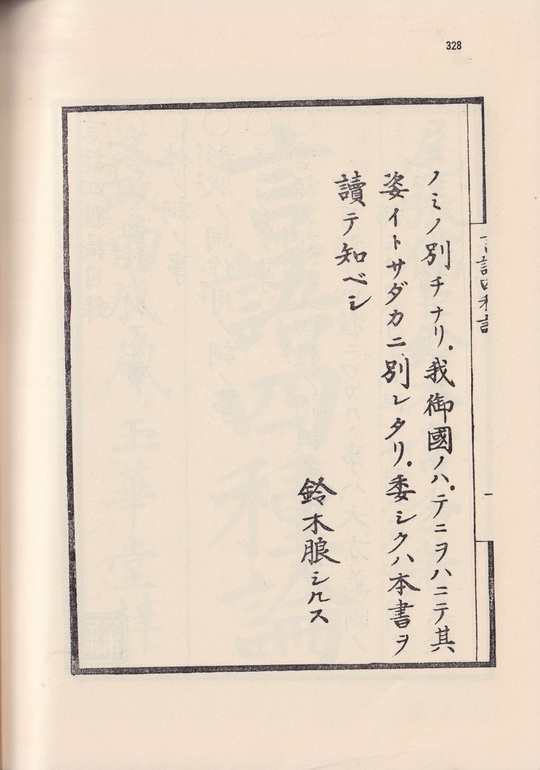 328
ノミノ別チナリ。我御國ノハ。テニヲハニテ其
姿イトサダカニ別レタリ。委シクハ本書ヲ
讀テ知ベシ
鈴木朖シルス
一